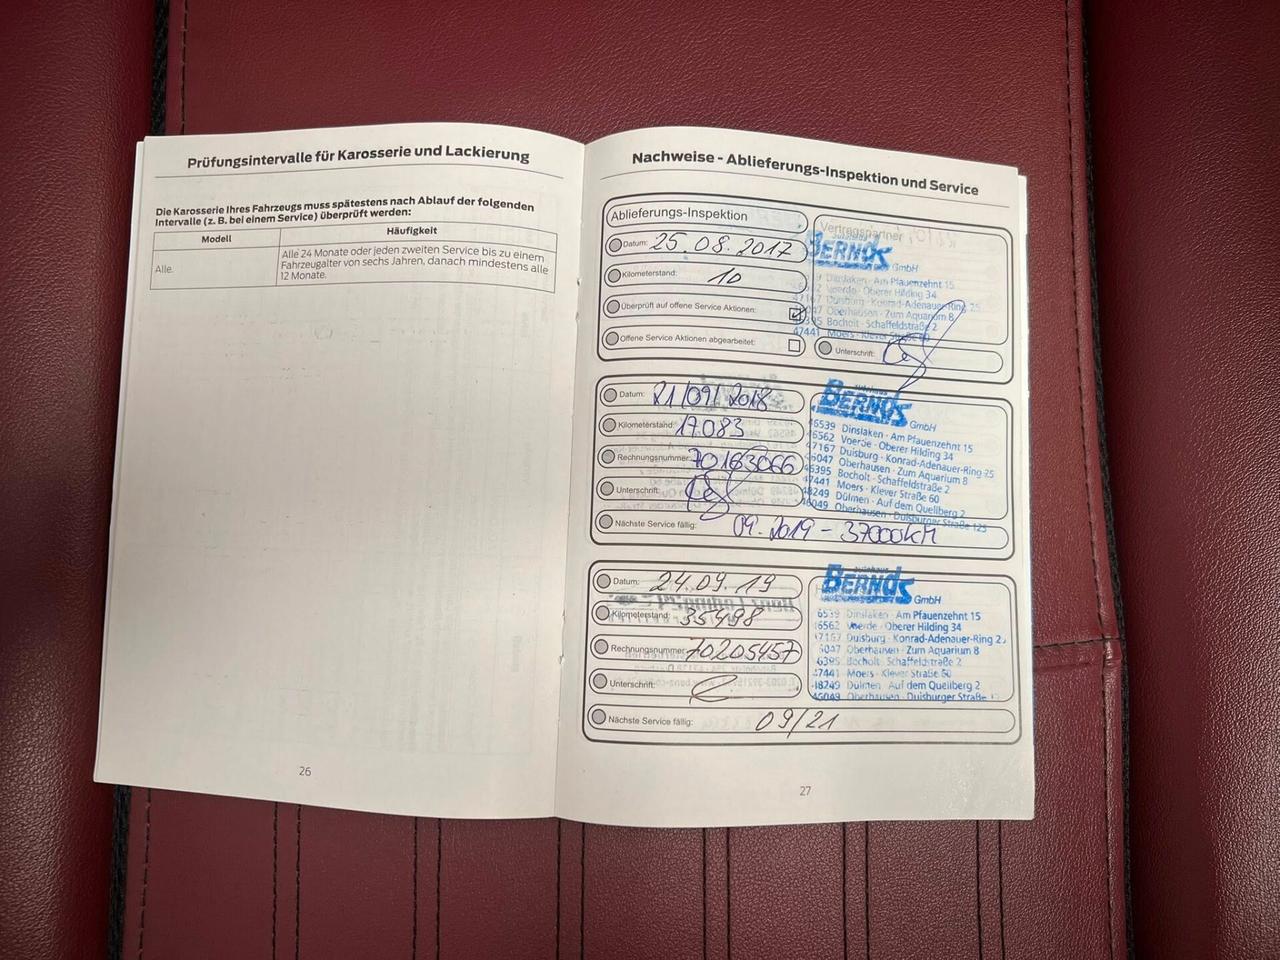 Prüfungsintervalle für Karosserie und Lackierung
Die Karosserie Ihres Fahrzeugs muss spätestens nach Ablauf der folgenden
Intervalle (z. B. bei einem Service) überprüft werden:
Modell
Häufigkeit
Alle.
Alle 24 Monate oder jeden zweiten Service bis zu einem
Fahrzeugalter von sechs Jahren, danach mindestens alle
12 Monate.
26
Nachweise - Ablieferungs-Inspektion und Service
Ablieferungs-Inspektion
Datum: 25.08.2017
Kilometerstand: 10
Überprüft auf offene Service Aktionen:
Offene Service Aktionen abgearbeitet:
Vertragspartner
BERNDS
GmbH
Dinslaken · Am Pfauenzehnt 15
Voerde · Oberer Hilding 34
47167 Duisburg · Konrad-Adenauer-Ring 25
Oberhausen · Zum Aquarium 8
Bocholt · Schaffeldstraße 2
47441 Moers · Klever Straße 60
Unterschrift:
Datum: 21/09/2018
Kilometerstand: 17083
Rechnungsnummer: 70183066
Unterschrift:
Nächste Service fällig: 09.2019 - 37000KM
autohaus
BERNDS
GmbH
46539 Dinslaken · Am Pfauenzehnt 15
46562 Voerde · Oberer Hilding 34
47167 Duisburg · Konrad-Adenauer-Ring 25
46047 Oberhausen · Zum Aquarium 8
46395 Bocholt · Schaffeldstraße 2
47441 Moers · Klever Straße 60
48249 Dülmen · Auf dem Quellberg 2
46049 Oberhausen · Duisburger Straße 125
Datum: 24.09.19
Kilometerstand: 33498
Rechnungsnummer: 70205457
Unterschrift:
Nächste Service fällig: 09/21
autohaus
BERNDS
GmbH
Dinslaken · Am Pfauenzehnt 15
Voerde · Oberer Hilding 34
Duisburg · Konrad-Adenauer-Ring
Oberhausen · Zum Aquarium 8
Bocholt · Schaffeldstraße 2
Moers · Klever Straße 60
48249 Dülmen · Auf dem Quellberg 2
46049 Oberhausen · Duisburger Straße
27